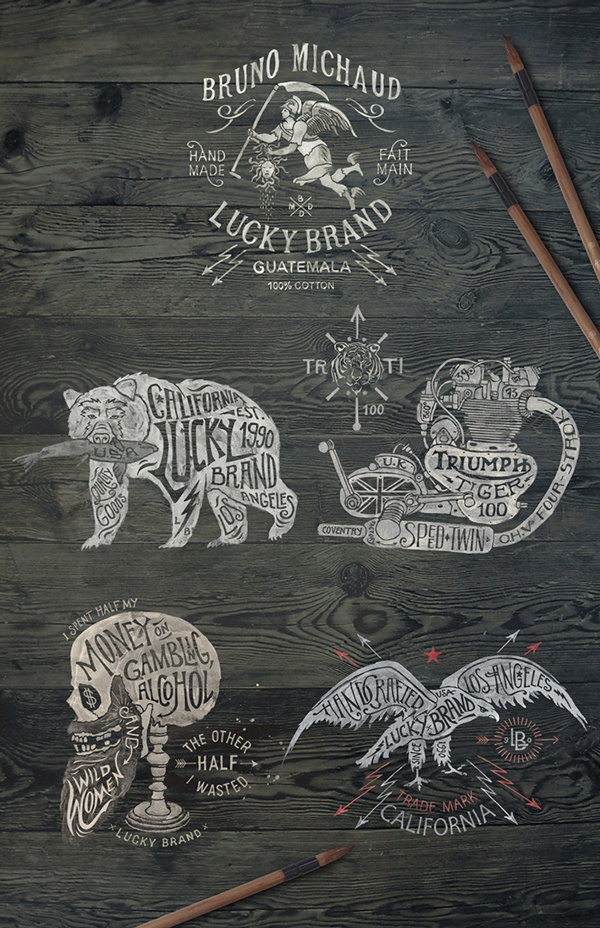 BRUNO MICHAUD
HAND MADE
FAIT MAIN
B
M D
D
LUCKY BRAND
GUATEMALA
100% COTTON
CALIFORNIA
EST.
LUCKY 1990
BRAND
USA
LUCKY GOODS
LB
LOS ANGELES
TR TI
100
U.K.
TRIUMPH
TIGER
100
COVENTRY
SPED•TWIN
O.H.V FOUR STROKE
I SPENT HALF MY
MONEY ON
GAMBLIG,
ALCOHOL
$
AND
WILD
WOMEN
THE OTHER
HALF
I WASTED
LUCKY BRAND
HANDCRAFTED
USA
LOS ANGELES
LUCKY BRAND
SINCE 1990
LB
TRADE MARK
CALIFORNIA